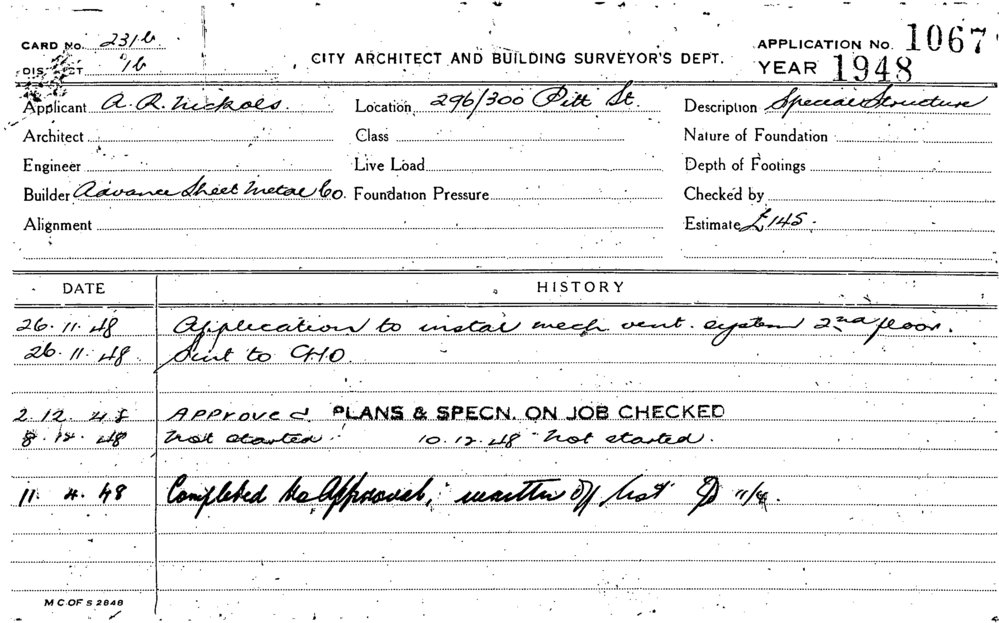 CARD No. 231b
DISTRICT 1b
CITY ARCHITECT AND BUILDING SURVEYOR'S DEPT.
APPLICATION No. 1067
YEAR 1948
Applicant A. R. Nickols. Location 296/300 Pitt St. Description Special Structure
Architect Class Nature of Foundation
Engineer Live Load Depth of Footings
Builder Advance Sheet Metal Co. Foundation Pressure Checked by
Alignment Estimate £145.
DATE HISTORY
26.11.48 Application to instal mech vent. system 2nd floor.
26.11.48. Sent to CHO.
2.12.48 Approved PLANS & SPECN. ON JOB CHECKED
8.12.48 Not started. 10.12.48 Not started.
11.4.48 Completed to Approval, written off list 11/4.
M C OF S 2848